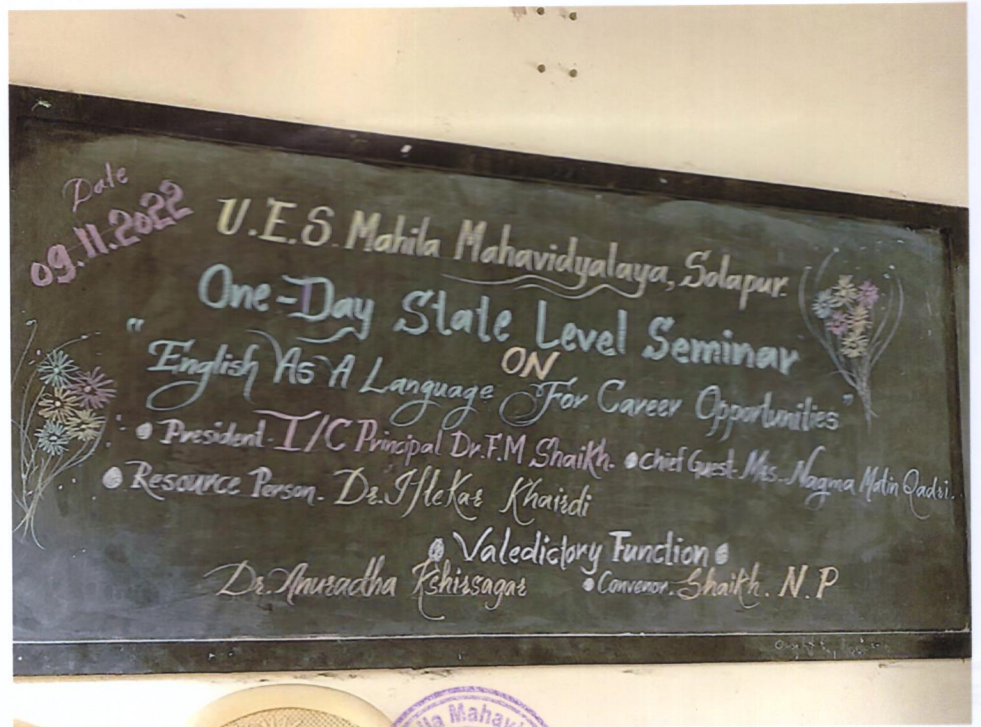 Date
09.11.2022
U.E.S. Mahila Mahavidyalaya, Solapur.
One-Day State Level Seminar
ON
"English As A Language For Career Opportunities"
• President - I/C Principal Dr. F.M Shaikh. • Chief Guest - Mrs. Nagma Matin Qadri.
• Resource Person - Dr. Iftekar Khairdi
• Valedictory Function •
Dr. Anuradha Kshirsagar • Convenor. Shaikh. N.P
Mahavi